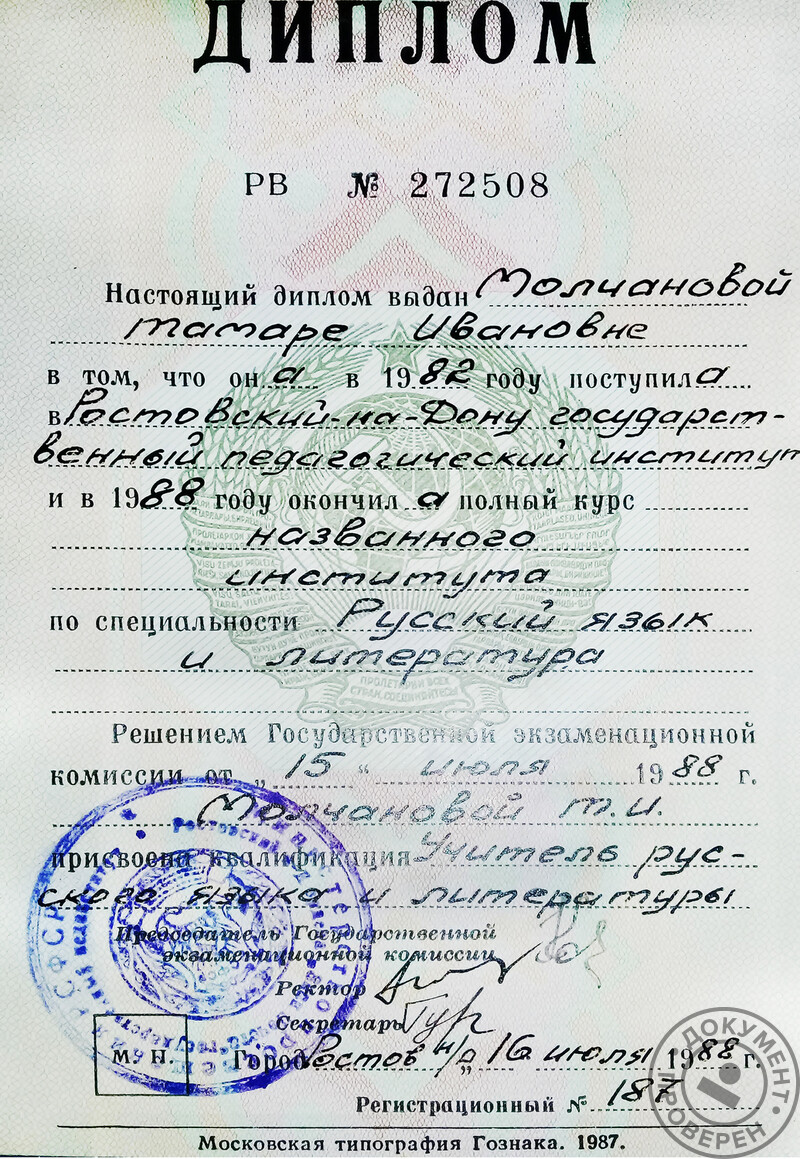 ДИПЛОМ
РВ № 272508
Настоящий диплом выдан Молчановой
Тамаре Ивановне
в том, что она в 1982 году поступила
в Ростовский-на-Дону государст-
венный педагогический институт
и в 1988 году окончила полный курс
названного
института
по специальности Русский язык
и литература
Решением Государственной экзаменационной
комиссии от „15“ июля 1988 г.
Молчановой Т.И.
присвоена квалификация Учитель рус-
ского языка и литературы
Председатель Государственной
экзаменационной комиссии
Ректор
Секретарь
М. П.
Город Ростов н/Д 16 июля 1988 г.
Регистрационный № 187
Московская типография Гознака. 1987.
ДОКУМЕНТ ПРОВЕРЕН